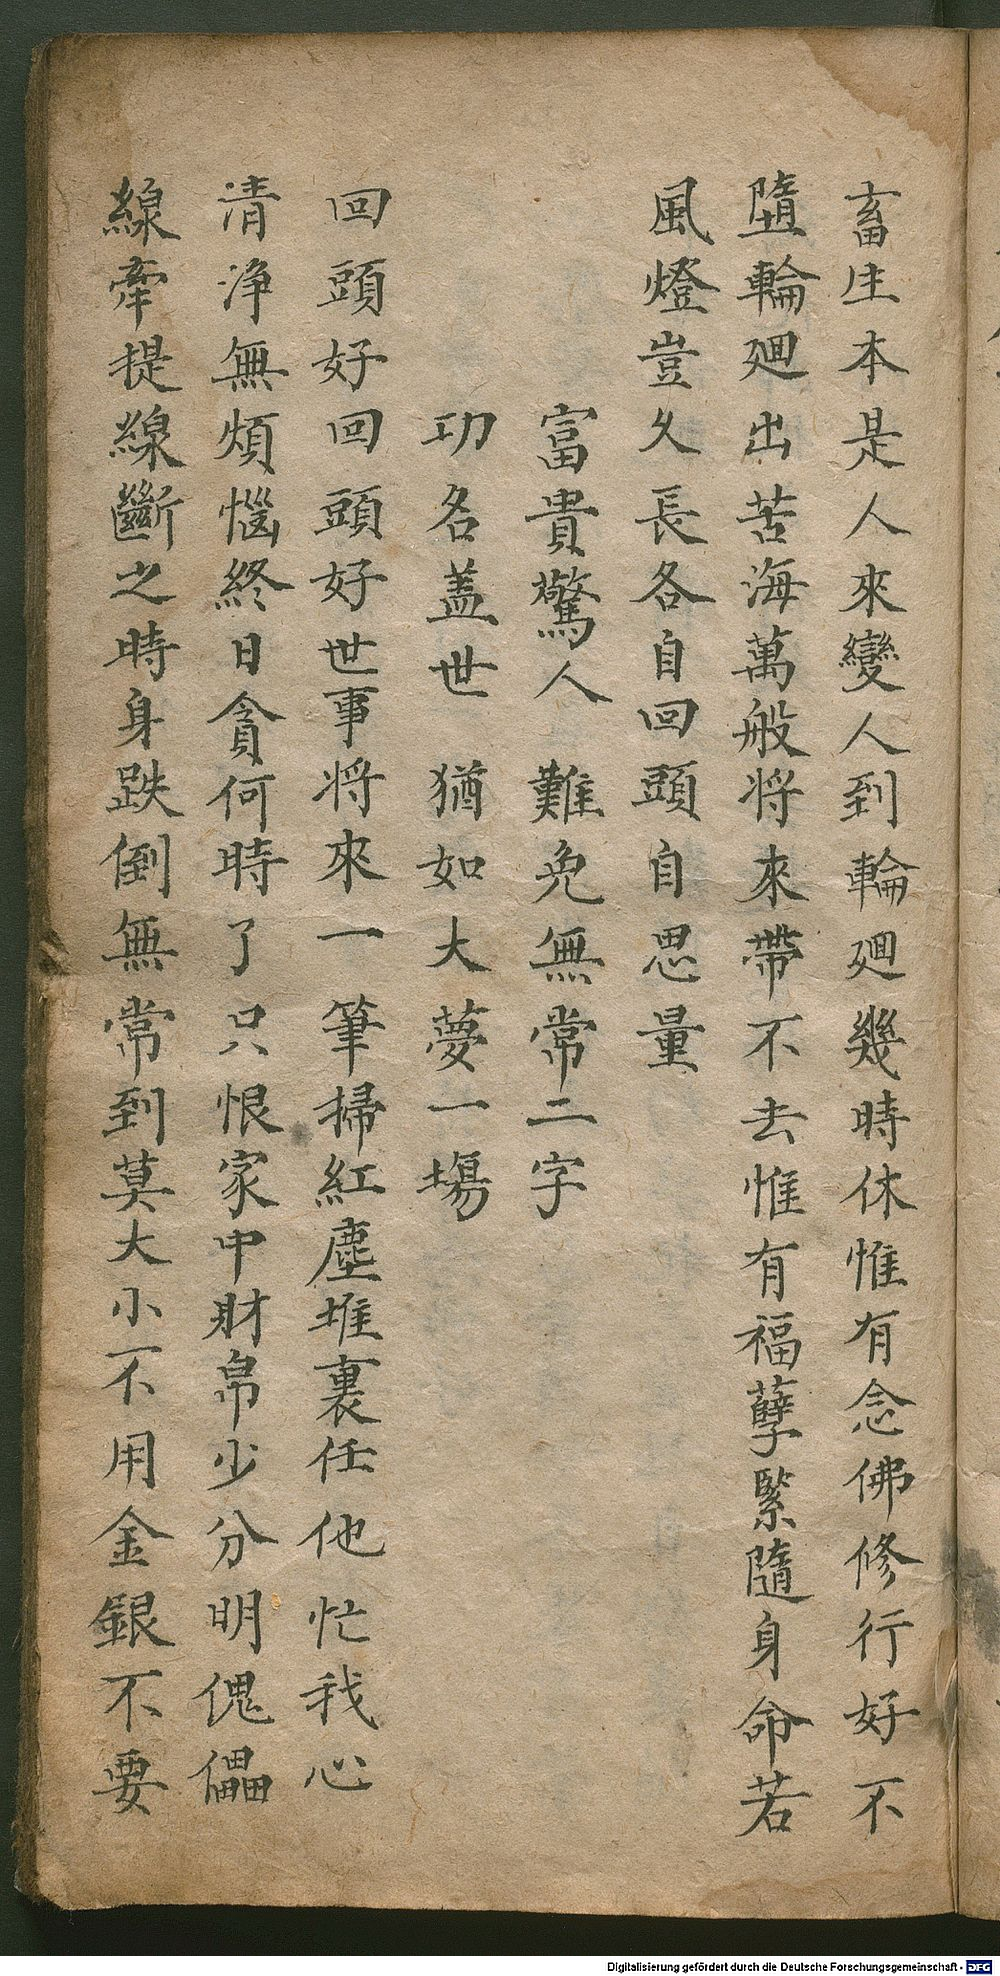 畜生本是人來變人到輪廻幾時休惟有念佛修行好不
墮輪廻出苦海萬般將來帶不去惟有福孽緊隨身命若
風燈豈久長各自回頭自思量
富貴驚人 難免無常二字
功名盖世 猶如大夢一塲
回頭好回頭好世事将來一筆掃紅塵堆裏任他忙我心
清浄無煩惱終日貪何時了只恨家中財帛少分明傀儡
線牽提線斷之時身跌倒無常到莫大小不用金銀不要
Digitalisierung gefördert durch die Deutsche Forschungsgemeinschaft - DFG